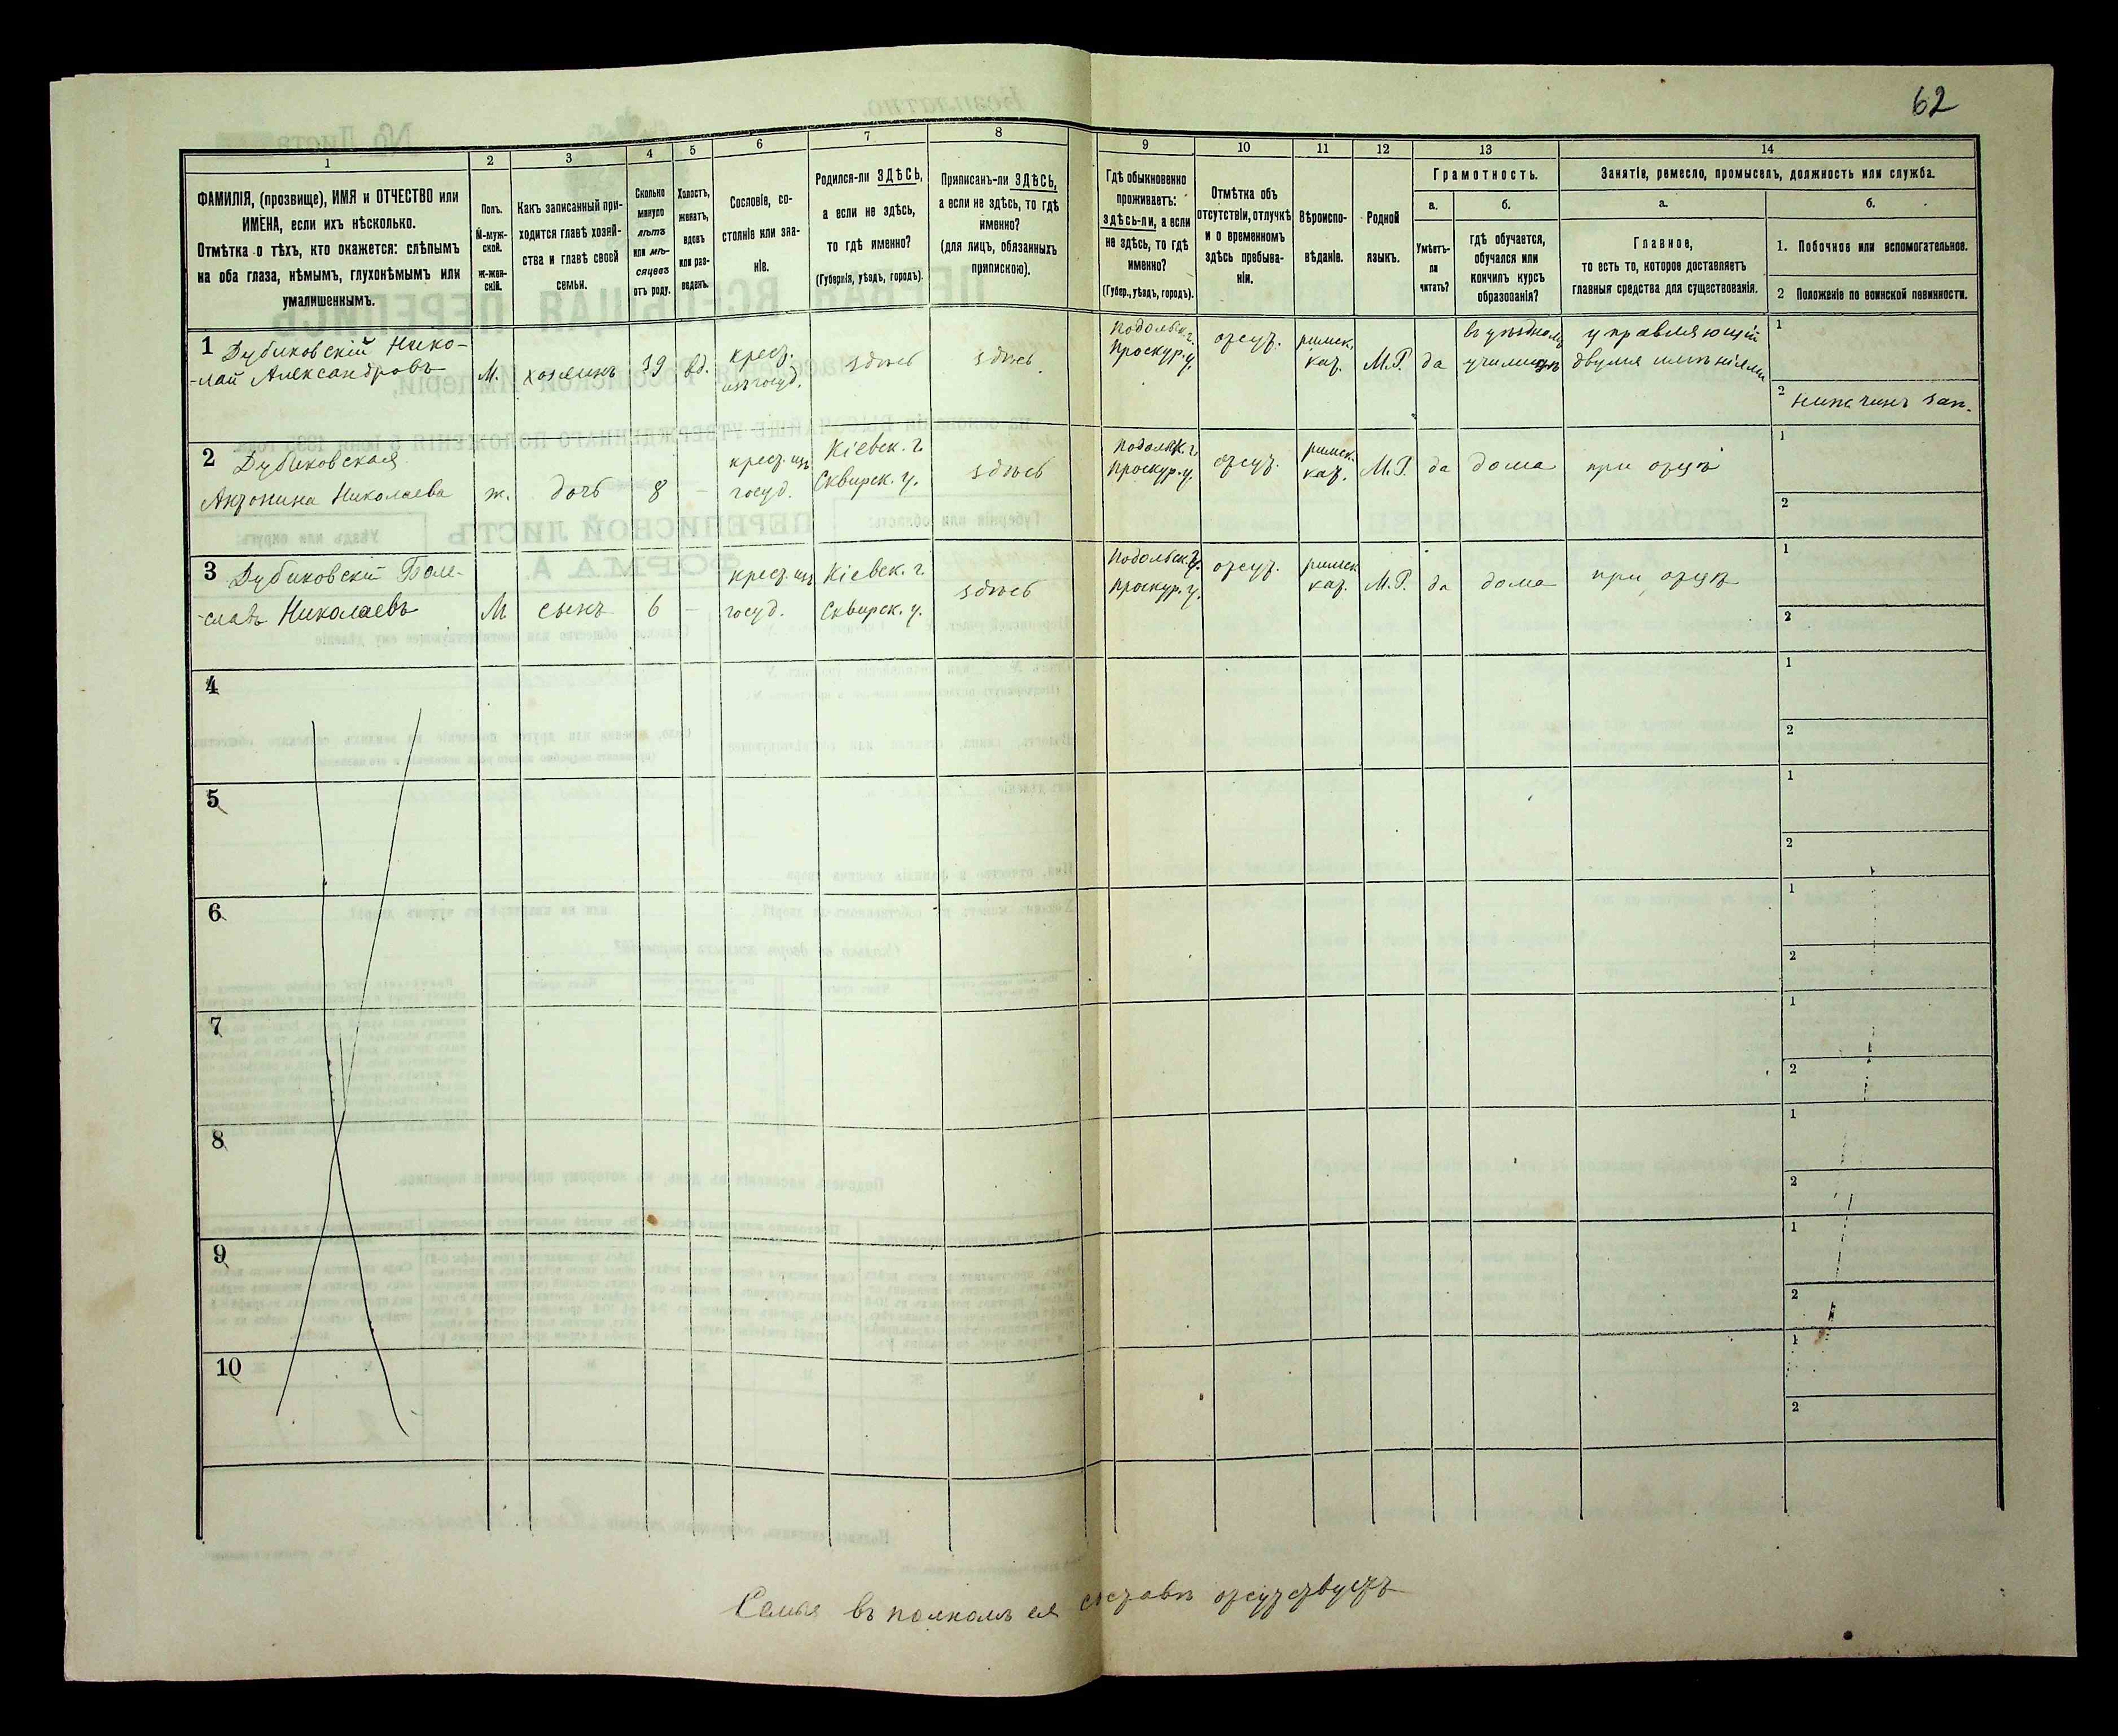 62
1 2 3 4 5 6 7 8 9 10 11 12 13 14
ФАМИЛІЯ, (прозвище), ИМЯ и ОТЧЕСТВО или
ИМЕНА, если ихъ нѣсколько.
Отмѣтка о тѣхъ, кто окажется: слѣпымъ
на оба глаза, нѣмымъ, глухонѣмымъ или
умалишеннымъ.
Полъ.
М-муж-
ской.
ж-жен-
скій.
Какъ записанный при-
ходится главѣ хозяй-
ства и главѣ своей
семьи.
Сколько
минуло
лѣтъ
или мѣ-
сяцевъ
отъ роду.
Холостъ,
женатъ,
вдовъ
или раз-
веденъ.
Сословіе, со-
стояніе или зва-
ніе.
Родился-ли ЗДѢСЬ,
а если не здѣсь,
то гдѣ именно?
(Губернія, уѣздъ, городъ).
Приписанъ-ли ЗДѢСЬ,
а если не здѣсь, то гдѣ
именно?
(для лицъ, обязанныхъ
припискою).
Гдѣ обыкновенно
проживаетъ:
здѣсь-ли, а если
не здѣсь, то гдѣ
именно?
(Губер., уѣздъ, городъ).
Отмѣтка объ
отсутствіи, отлучкѣ
и о временномъ
здѣсь пребыва-
ніи.
Вѣроиспо-
вѣданіе.
Родной
языкъ.
Грамотность.
а.
Умѣетъ-
ли
читать?
б.
гдѣ обучается,
обучался или
кончилъ курсъ
образованія?
Занятіе, ремесло, промыселъ, должность или служба.
а.
Главное,
то есть то, которое доставляетъ
главныя средства для существованія.
б.
1. Побочное или вспомогательное.
2 Положеніе по воинской повинности.
1 Дубиковскій Нико-
-лай Александровъ
М.
хозяинъ
39
вд.
крест.
изъ госуд.
здѣсь
здѣсь
Подольск. г.
Проскур. у.
отсут.
римск.
кат.
М.Р.
да
въ уѣздномъ
училищѣ
управляющій
двумя имѣніями
1
2 нижн. чинъ зап.
2 Дубиковская
Антонина Николаева
ж.
дочь
8
-
крест. изъ
госуд.
Кіевск. г.
Сквирск. у.
здѣсь
Подольск. г.
Проскур. у.
отсут.
римск.
кат.
М.Р.
да
дома
при отцѣ
1
2
3 Дубиковскій Боле-
-славъ Николаевъ
М
сынъ
6
-
крест. изъ
госуд.
Кіевск. г.
Сквирск. у.
здѣсь
Подольск. г.
Проскур. у.
отсут.
римск.
кат.
М.Р.
да
дома
при отцѣ
1
2
4
1
2
5
1
2
6
1
2
7
1
2
8
1
2
9
1
2
10
1
2
Семья въ полномъ ея составѣ отсутствуетъ